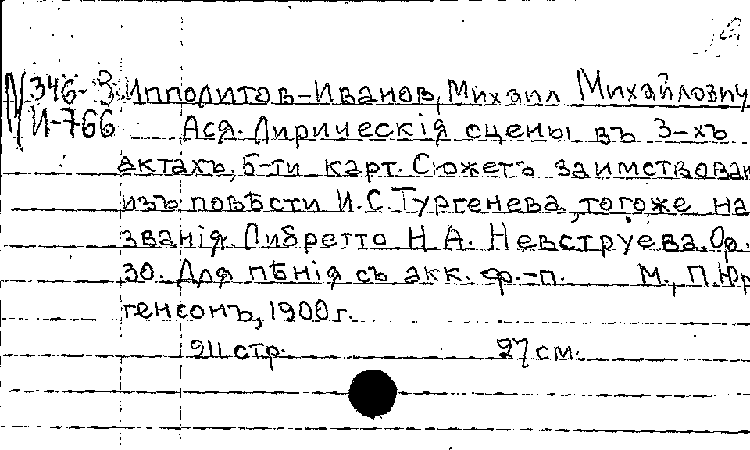 346-3 Ипполитов-Иванов, Михаил Михайлович
И-766 Ася. Лирическiя сцены въ 3-хъ
актахъ, 5-ти карт. Сюжетъ заимствован
изъ повѣсти И.С.Тургенева, тогоже на
званiя. Либретто Н.А. Невструева. Op.
30. Для пѣнiя съ акк. ф.-п. М., П.Юр
генсонъ, 1900г.
211 стр. 27 см.